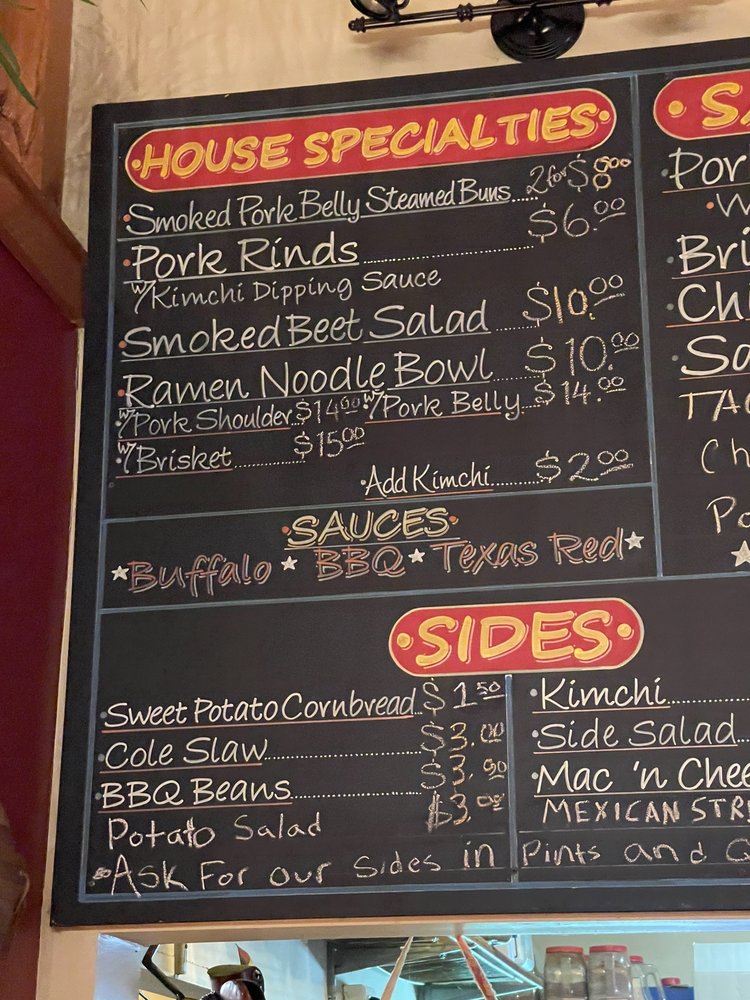 HOUSE SPECIALTIES
Smoked Pork Belly Steamed Buns.....2 for $8.00
Pork Rinds.....$6.00
w/Kimchi Dipping Sauce
Smoked Beet Salad.....$10.00
Ramen Noodle Bowl.....$10.00
w/Pork Shoulder $14.00 w/Pork Belly...$14.00
w/Brisket.....$15.00
Add Kimchi.....$2.00
SAUCES
Buffalo BBQ Texas Red
SIDES
Sweet Potato Cornbread..$1.50
Cole Slaw.....$3.00
BBQ Beans.....$3.00
Potato Salad $3.00
Kimchi.....
Side Salad...
Mac 'n Chee
MEXICAN STR
Ask For our Sides in Pints and Q
SA
Por
W
Bri
Chi
Sa
TAC
Ch
Po